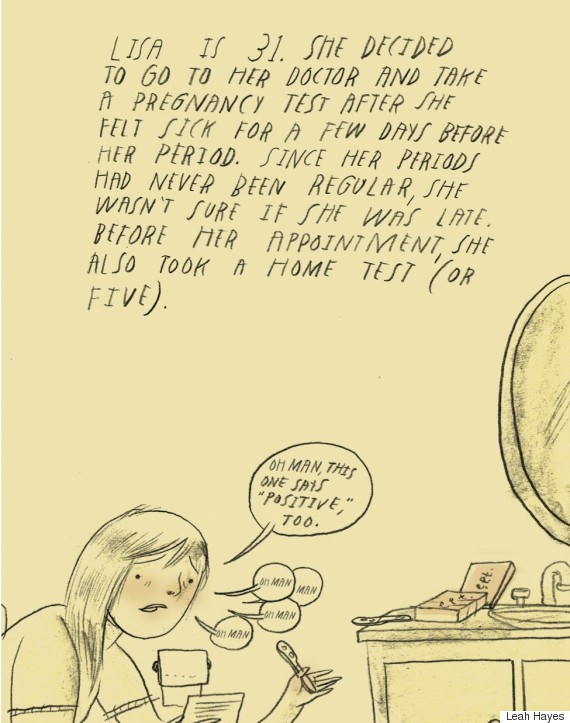 LISA IS 31. SHE DECIDED
TO GO TO HER DOCTOR AND TAKE
A PREGNANCY TEST AFTER SHE
FELT SICK FOR A FEW DAYS BEFORE
HER PERIOD. SINCE HER PERIODS
HAD NEVER BEEN REGULAR, SHE
WASN'T SURE IF SHE WAS LATE.
BEFORE HER APPOINTMENT, SHE
ALSO TOOK A HOME TEST (OR
FIVE).
OH MAN, THIS
ONE SAYS
"POSITIVE,"
TOO.
OH MAN
MAN
OH MAN
OH MAN
Leah Hayes